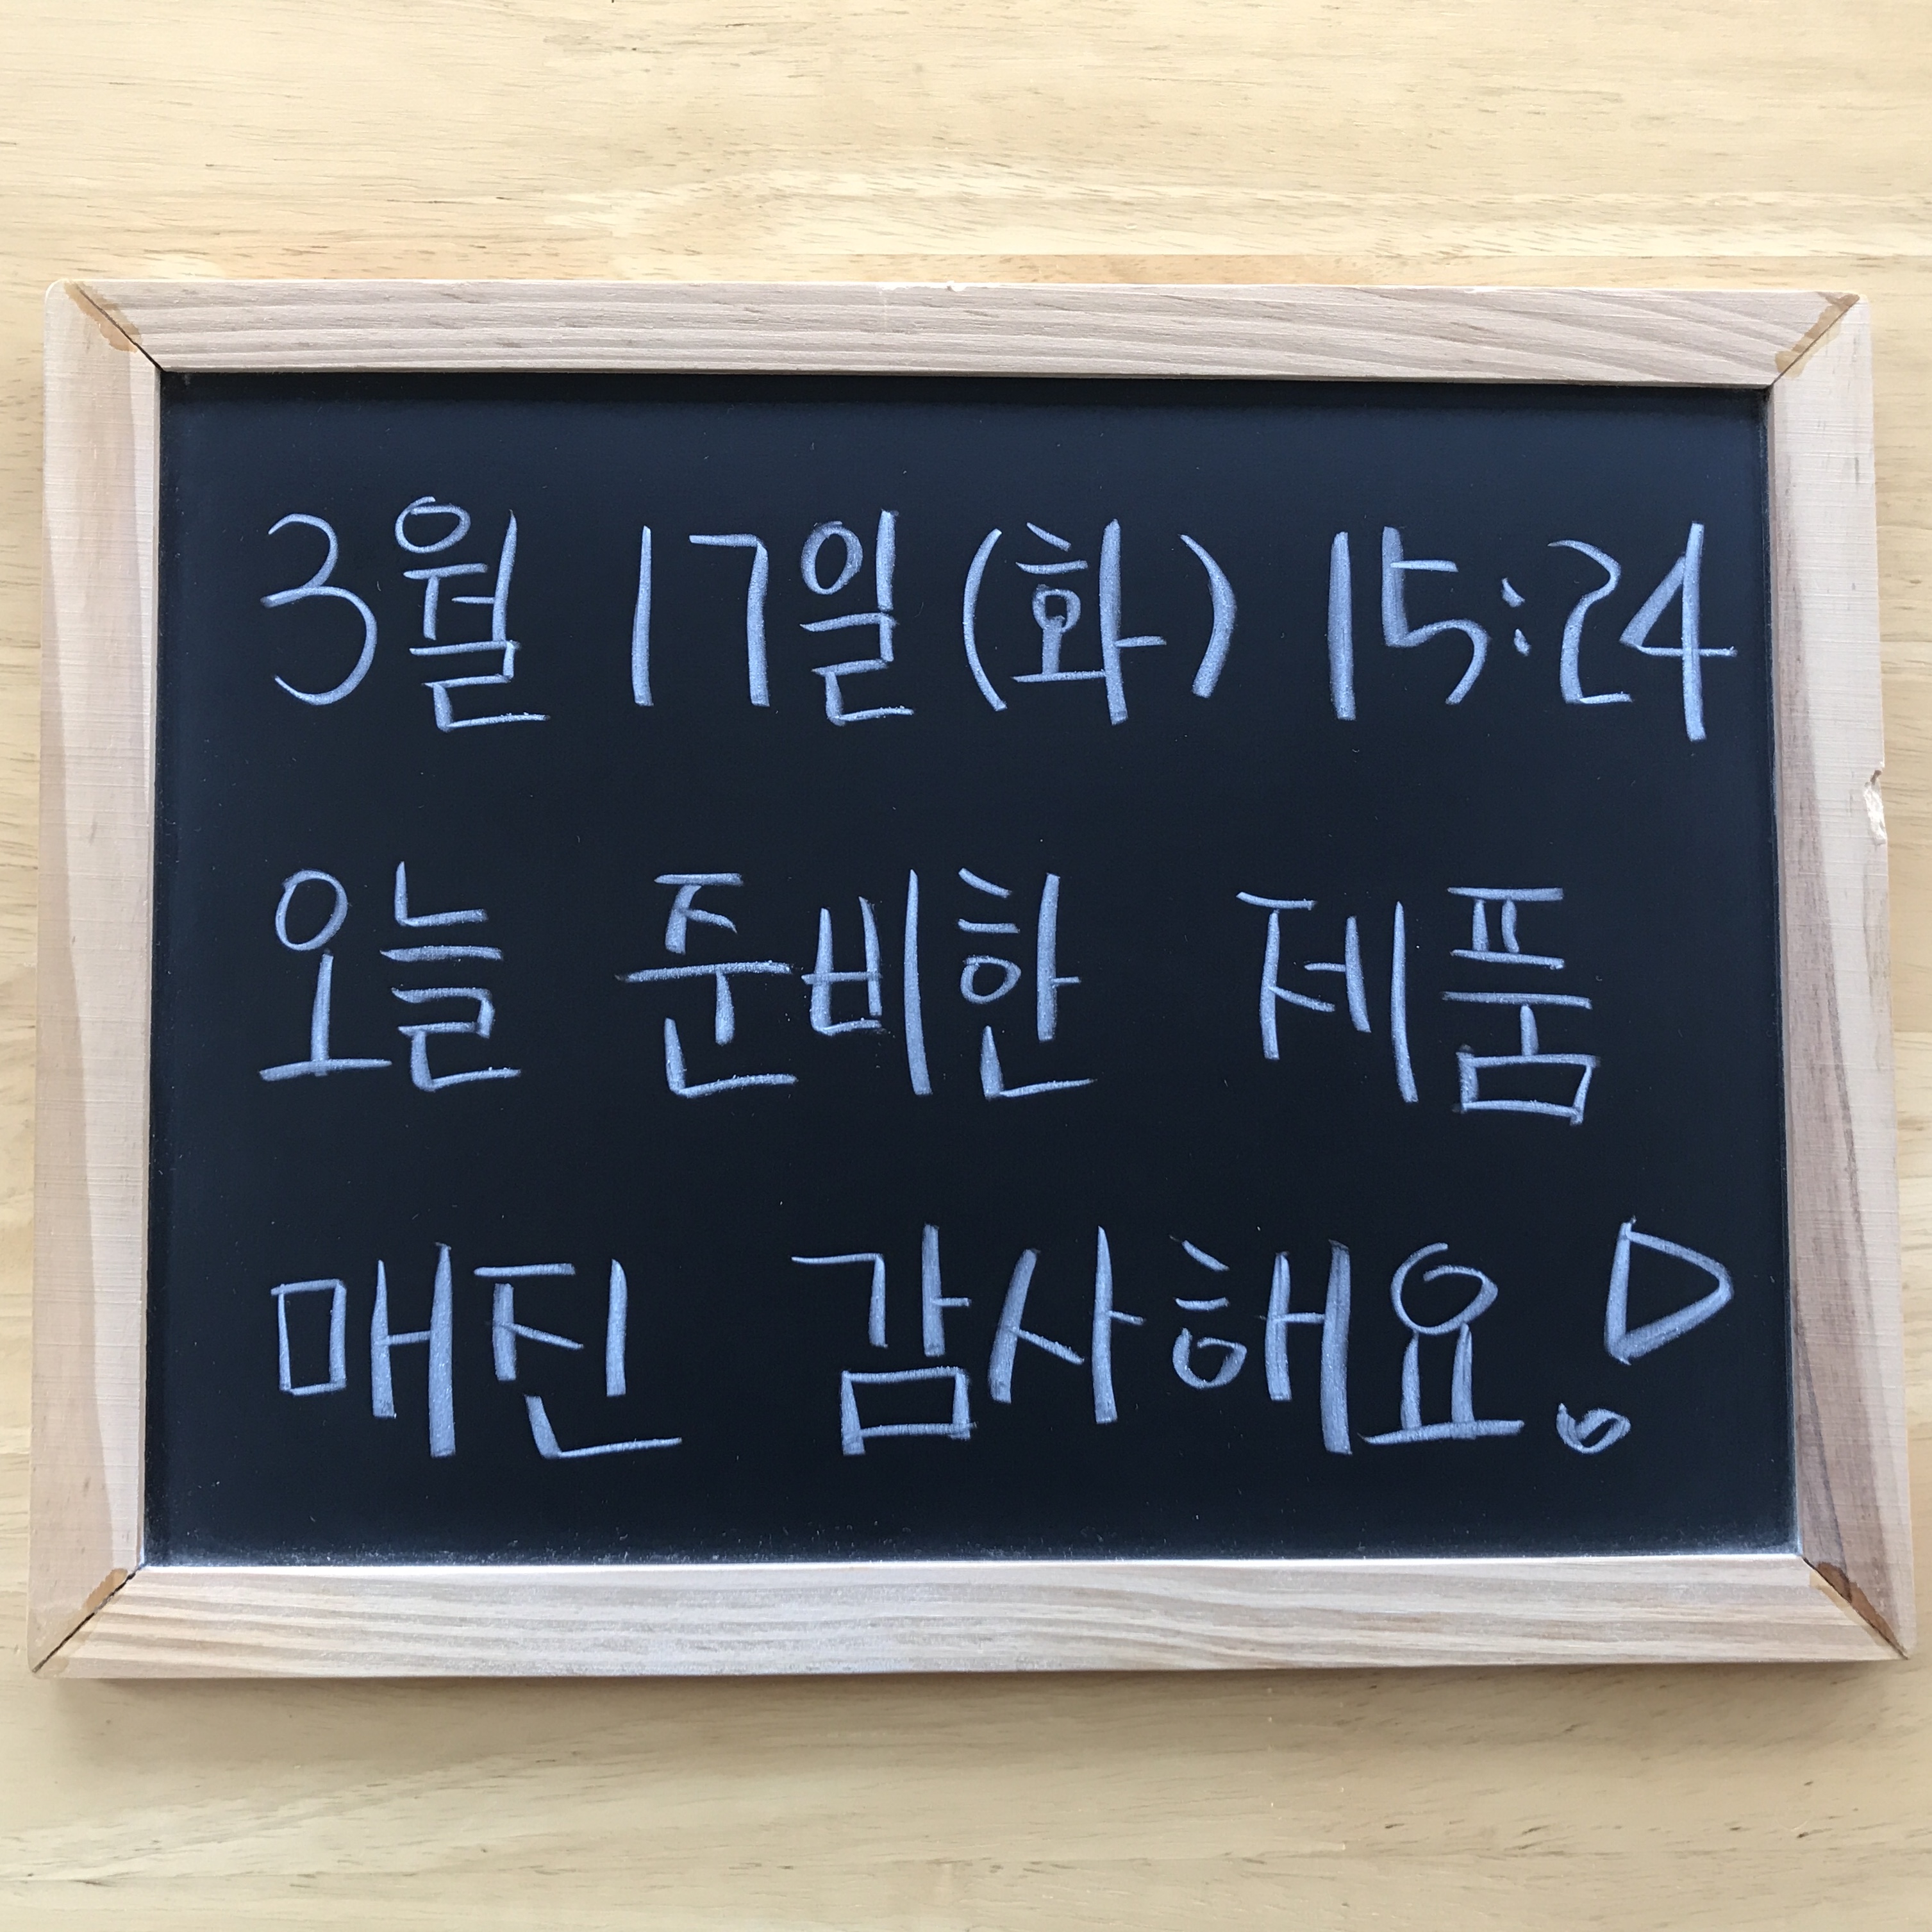 3월 17일(화) 15:24
오늘 준비한 제품
매진 감사해요!